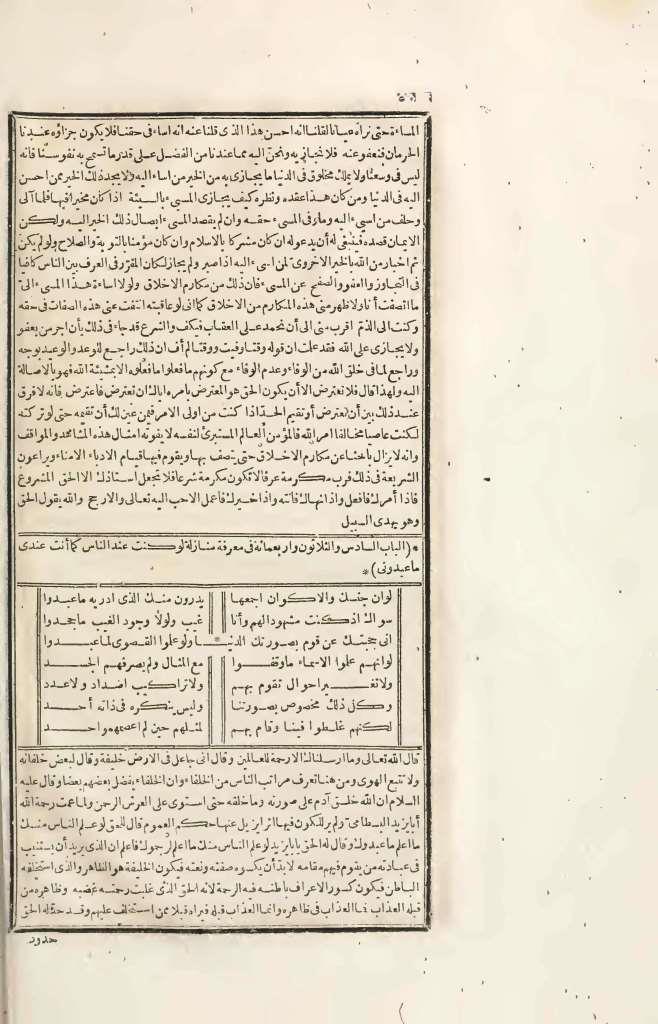 المساءة حتى نراه عيانا لقلنا انه احسن هذا الذى قلنا عنه انه اساء فى حقنا فلا يكون جزاؤه عندنا
الحرمان فنعفو عنه فلا نجازيه ونحسن اليه مما عندنا من الفضل على قدر ما تسمح به نفوسنا فانه
ليس فى وسعنا ولا يملك مخلوق فى الدنيا ما يجازى به من الخير من اساء اليه ولا يجد ذلك الخير ممن احسن
اليه فى الدنيا ومن كان هذا عقده ونظره كيف يجازى المسىء بالسيئة اذا كان مخيرا فيها فلما آلى
وحلف من اسىء اليه وما وفى المسىء حقه وان لم يقصد المسىء ايصال ذلك الخير اليه ولكن
الايمان قصده فينبغى له أن يدعو له ان كان مشركا بالاسلام وان كان مؤمنا بالتوبة والصلاح ولو لم يكن
ثم اخبار من الله بالخير الاخروى لمن اسىء اليه اذا صبر ولم يجاز لكان المقرر فى العرف بين الناس كافيا
فى التجاوز والعفو والصفح عن المسىء فان ذلك من مكارم الاخلاق ولولا اساءة هذا المسىء الى
ما اتصفت أنا ولا ظهر منى هذه المكارم من الاخلاق كما انى لو عاقبته انتفت عنى هذه الصفات فى حقه
وكنت الى الذم اقرب منى الى أن نحمد على العقاب فكيف والشرع قد جاء فى ذلك بأن اجر من يعفو
ولا يجازى على الله فقد علمت ان قوله وقتا وفيت ووقتا لم أف ان ذلك راجع للوعد والوعيد بوجه
وراجع لما فى خلق الله من الوفاء وعدم الوفاء مع كونهم ما فعلوا ما فعلوه الا بمشيئة الله فهو بالاصالة
اليه ولهذا قال فلا تعترض الا أن يكون الحق هو المعترض بامره اياك ان تعترض فاعترض فانه لا فرق
عند ذلك بين أن تعترض أو تقيم الحد اذا كنت من اولى الامر فمن عين لك أن تقيمه حتى لو تركته
لكنت عاصيا مخالفا امر الله فالمؤمن العالم المستبرئ لنفسه لا يفوته امثال هذه المشاهد والمواقف
وانه لا يزال باحثا عن مكارم الاخلاق حتى يتصف بها ويقوم فيها قيام الادباء الامناء ويراعون
الشريعة فى ذلك فرب مكرمة عرفا لا تكون مكرمة شرعا فلا تجعل استاذك الا الحق المشروع
فاذا أمرك فافعل واذا نهاك فانته واذا خيرك فاعمل الاحب اليه تعالى والارجح والله يقول الحق
وهو يهدى السبيل
* (الباب السادس والثلاثون واربعمائة فى معرفة منازلة لو كنت عند الناس كما أنت عندى
ما عبدونى) *
لو ان جنك والاكوان اجمعها يدرون منك الذى ادريه ما عبدوا
سواك اذ كنت مشهودا لهم وأنا غيب ولولا وجود الغيب ما جحدوا
انى حجبتك عن قوم بصورتك الدنيا ولو علموا القصوى لما عبدوا
لو انهم علموا الاسماء ما وقفوا مع المثال ولم يصرفهم الجسد
ولا تغير احوال تقوم بهم ولا تراكيب اضداد ولا عدد
وكل ذلك مخصوص بصورتنا وليس ينكره فى ذاته أحد
لكنهم غلطوا فينا وقام بهم لمثلهم حين لم اعصمهموا حسد
قال الله تعالى وما ارسلناك الا رحمة للعالمين وقال انى جاعل فى الارض خليفة وقال لبعض خلفائه
ولا تتبع الهوى ومن هنا تعرف مراتب الناس من الخلفاء وان الخلفاء يفضل بعضهم بعضا وقال عليه
السلام ان الله خلق آدم على صورته وما خلقه حتى استوى على العرش الرحمن ولما عمت رحمة الله
أبا يزيد البسطامى ولم ير للكون فيها اثرا يزيل عنها حكم العموم قال للحق لو علم الناس منك
ما اعلم ما عبدوك وقال له الحق يا ابا يزيد لو علم الناس منك ما اعلم لرجموك فاعلم ان الذى يريد أن يستنيب
فى عبادته من يقوم فيهم مقامه لا بد أن يكسوه صفته ونعته فيكون الخليفة هو الظاهر والذى استخلفه
الباطن فيكون كسور الاعراف باطنه فيه الرحمة لانه الحق الذى غلبت رحمته غضبه وظاهره من
قبله العذاب فما العذاب فى ظاهره وانما العذاب قبله فيراه قبلا ممن استخلف عليهم وقد حد له الحق
حدود